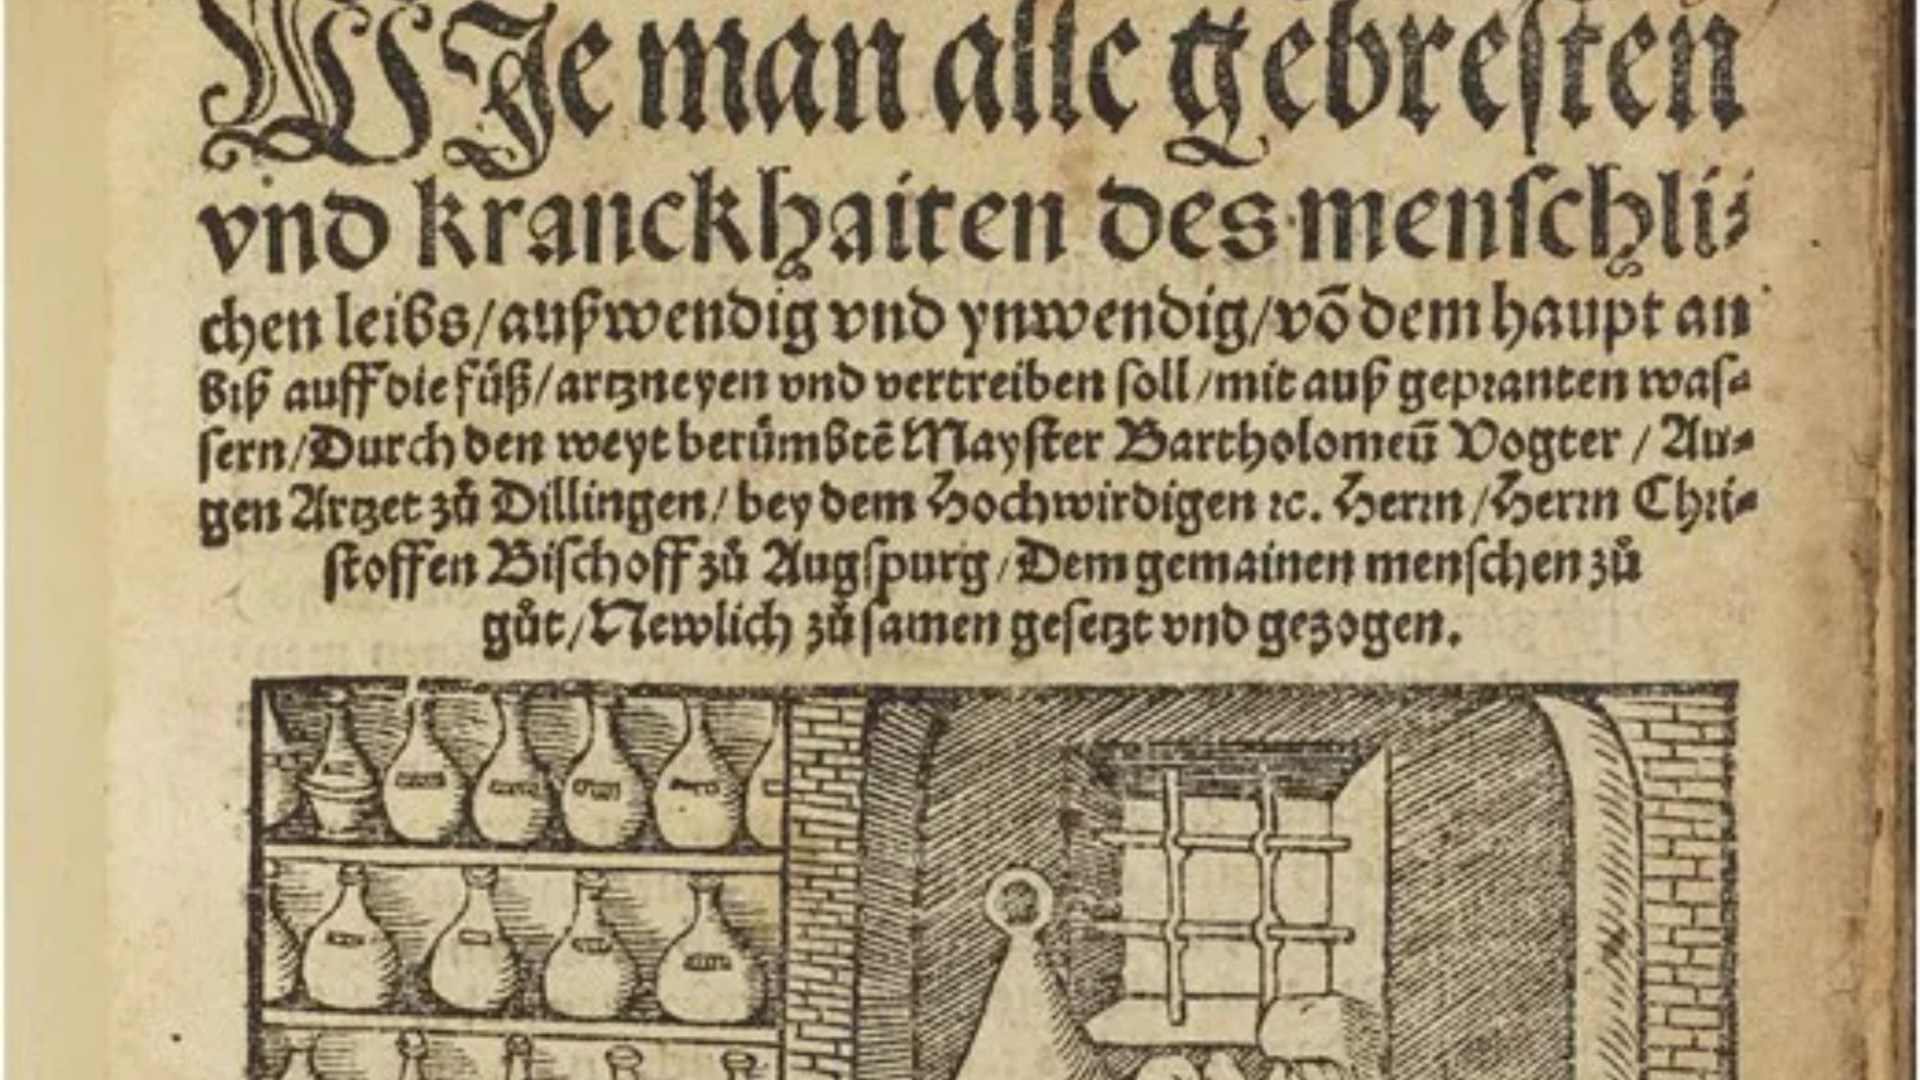 WJe man alle gebresten
vnd kranckhaiten des menschli⸗
chen leibs/außwendig vnd ynwendig/võ dem haupt an
biß auff die füß/artzneyen vnd vertreiben soll/mit auß gepranten was⸗
sern/Durch den weyt berümbtẽ Mayster Bartholomeũ Vogter / Au⸗
gen Artzet zů Dillingen/ bey dem Hochwirdigen ꝛc. Herrn /Herrn Chri⸗
stoffen Bischoff zů Augspurg/Dem gemainen menschen zů
gůt/Newlich zů samen gesetzt vnd gezogen.